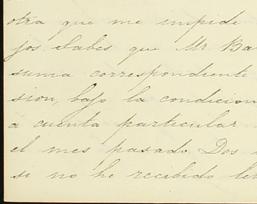 otra que me impide
jos sabes que Mr Ba
suma correspondiente
sion, bajo la condicion
a cuenta particular
el mes pasado. Dos
si no he recibido